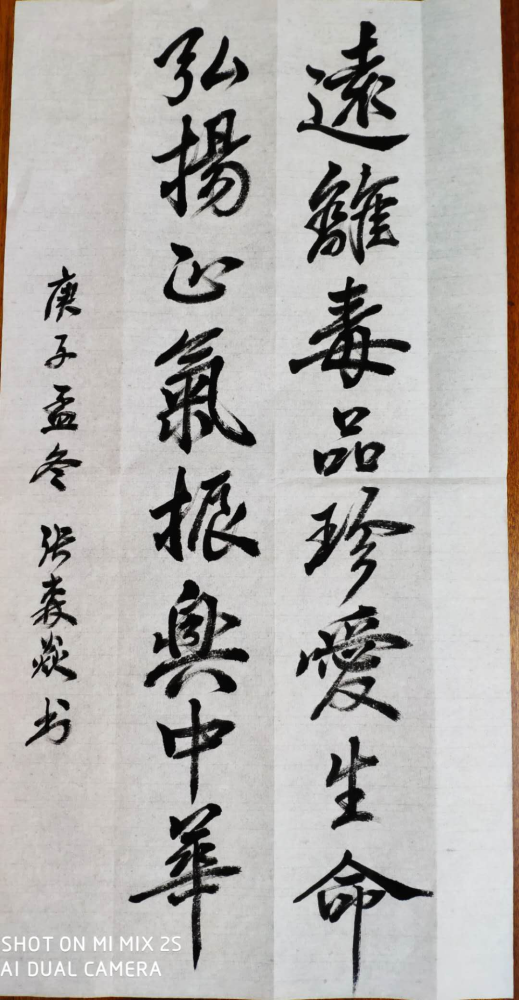 遠離毒品珍愛生命
弘揚正氣振興中華
庚子孟冬 张森焱书
SHOT ON MI MIX 2S
AI DUAL CAMERA